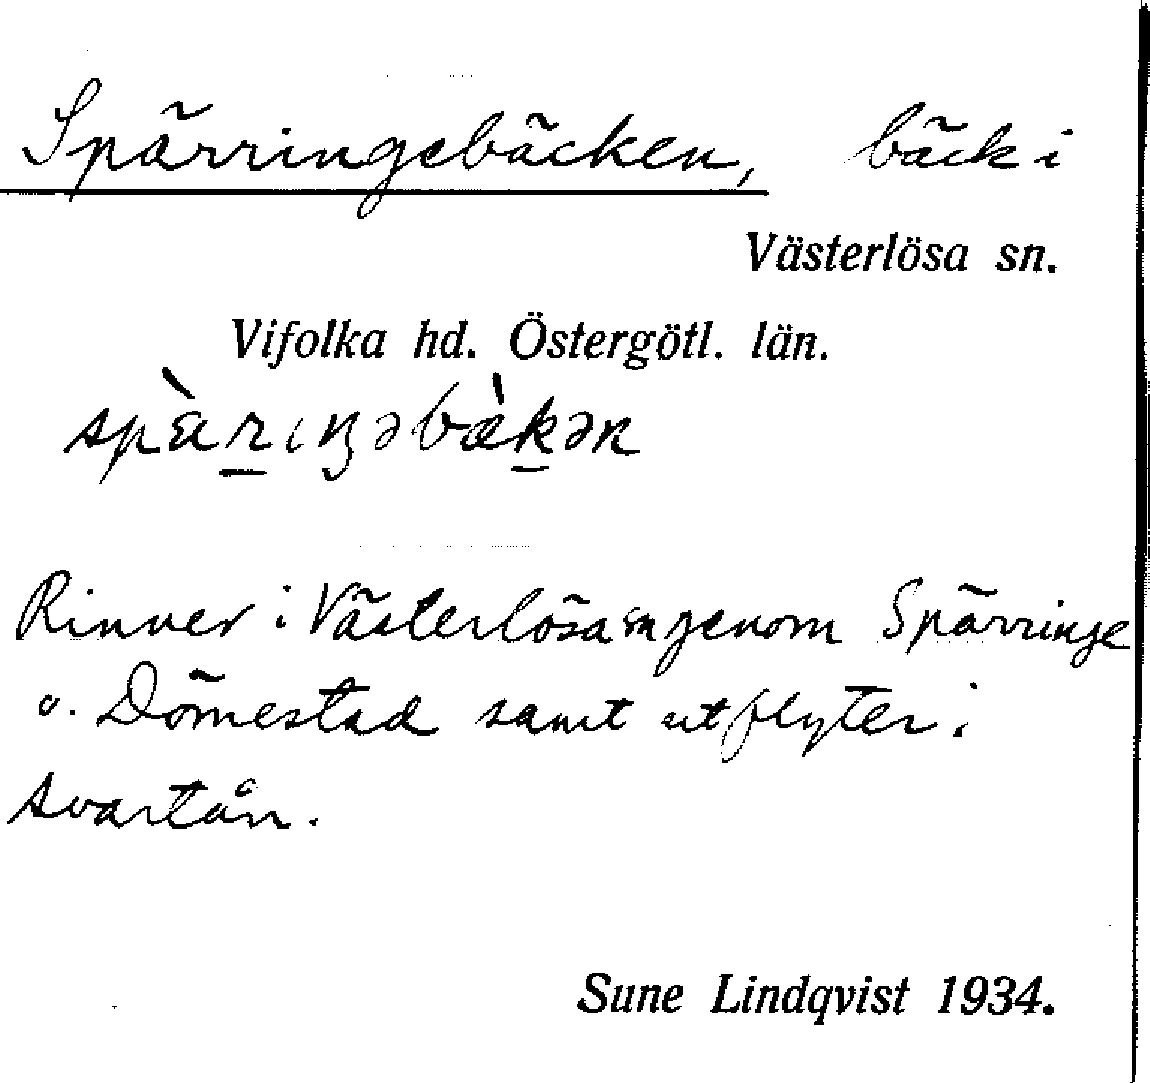 Spärringebäcken, bäck i
Västerlösa sn.
Vifolka hd. Östergötl. län.
spæ̀r̲ıŋəbæ̀k̲ən
Rinner i Västerlösa sn genom Spärringe
o. Dömestad samt utflyter i
Svartån.
Sune Lindqvist 1934.